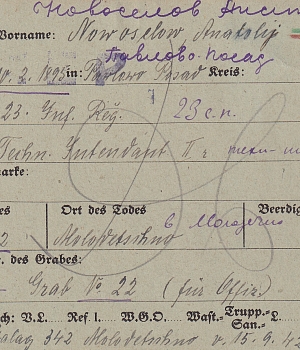 Новоселов Анато
Vorname: Nowoselow, Anatolij
Павлово-Посад
2. 1895 in: Pawlowo Posad Kreis:
23. Inf. Reg. 23 с.п.
Techn. Intendant II r
marke:
es Ort des Todes Beerdig
2 Molodetschno в Молодечно
. des Grabes:
Grab No. 22 (für Offiz.
ch: V.L. Ref I. W.G.O. Wast.- Trupp.- San.- L.
alag 342 Molodetschno v. 15.9.4